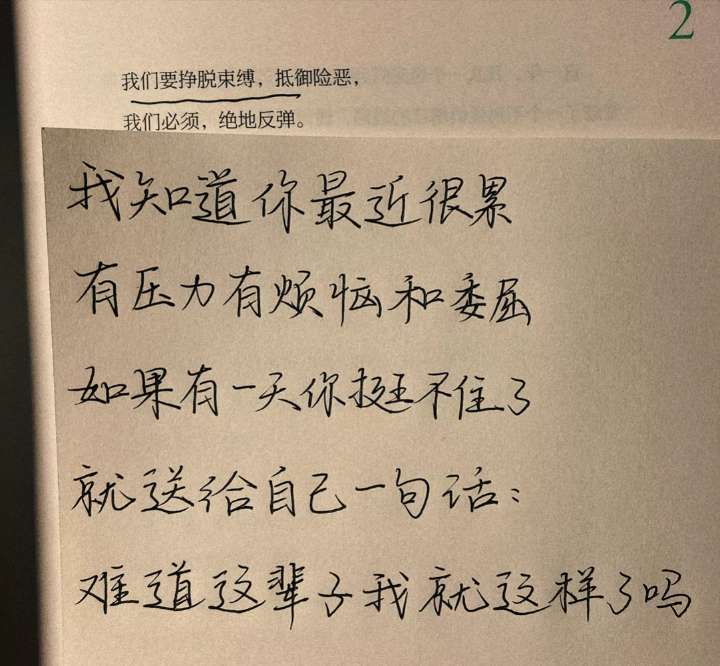 2
我们要挣脱束缚，抵御险恶，
我们必须，绝地反弹。
我知道你最近很累
有压力有烦恼和委屈
如果有一天你挺不住了
就送给自己一句话：
难道这辈子我就这样了吗